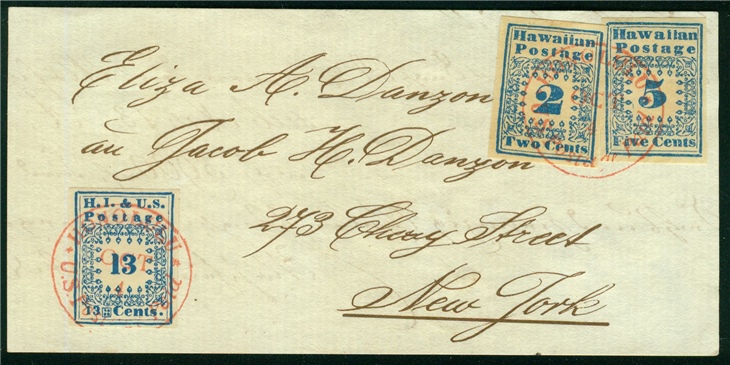 Hawaiian
Postage
2
Two Cents
Hawaiian
Postage
5
Five Cents
Eliza A. Danzon
au Jacob H. Danzon
273 Cherry Street
New York
H.I. & U.S.
Postage
13
13 Cents.
HONOLULU
OCT
1
U.S.